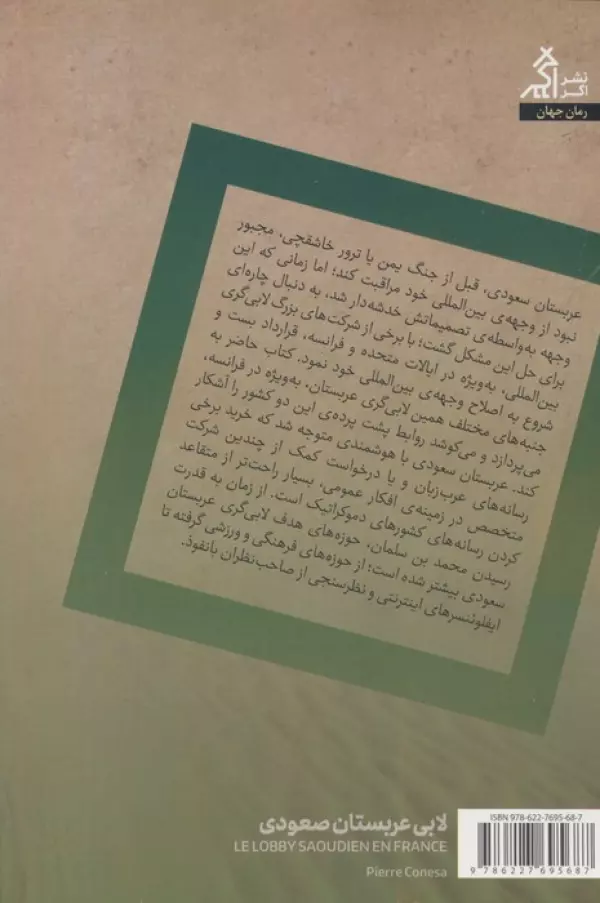 نشر
اگر
رمان جهان
عربستان سعودی، قبل از جنگ یمن یا ترور خاشقچی، مجبور
نبود از وجهه‌ی بین‌المللی خود مراقبت کند؛ اما زمانی که این
وجهه به‌واسطه‌ی تصمیماتش خدشه‌دار شد، به دنبال چاره‌ای
برای حل این مشکل گشت؛ با برخی از شرکت‌های بزرگ لابی‌گری
بین‌المللی، به‌ویژه در ایالات متحده و فرانسه، قرارداد بست و
شروع به اصلاح وجهه‌ی بین‌المللی خود نمود. کتاب حاضر به
جنبه‌های مختلف همین لابی‌گری عربستان، به‌ویژه در فرانسه،
می‌پردازد و می‌کوشد روابط پشت پرده‌ی این دو کشور را آشکار
کند. عربستان سعودی با هوشمندی متوجه شد که خرید برخی
رسانه‌های عرب‌زبان و یا درخواست کمک از چندین شرکت
متخصص در زمینه‌ی افکار عمومی، بسیار راحت‌تر از متقاعد
کردن رسانه‌های کشورهای دموکراتیک است. از زمان به قدرت
رسیدن محمد بن سلمان، حوزه‌های هدف لابی‌گری عربستان
سعودی بیشتر شده است؛ از حوزه‌های فرهنگی و ورزشی گرفته تا
اینفلوئنسرهای اینترنتی و نظرسنجی از صاحب‌نظران بانفوذ.
لابی عربستان صعودی
LE LOBBY SAOUDIEN EN FRANCE
Pierre Conesa
ISBN 978-622-7695-68-7
9 786227 695687